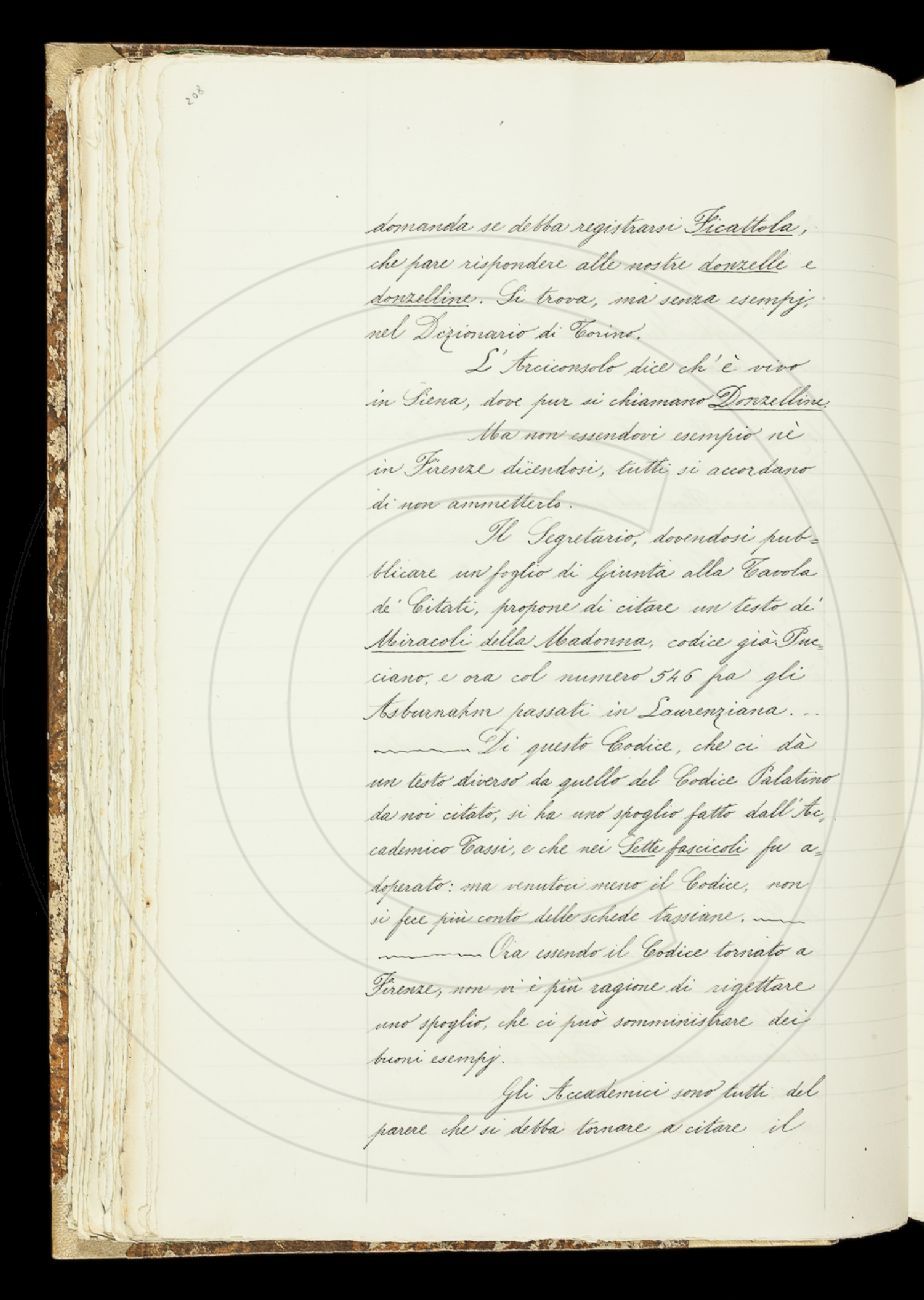 208
domanda se debba registrarsi Ficattola,
che pare rispondere alle nostre donzelle e
donzelline. Si trova, ma senza esempj,
nel Dizionario di Torino.
L' Arciconsolo dice ch' è vivo
in Siena, dove pur si chiamano Donzelline.
Ma non essendovi esempio nè
in Firenze dicendosi, tutti si accordano
di non ammetterlo.
Il Segretario, dovendosi pub=
blicare un foglio di Giunta alla Tavola
de' Citati, propone di citare un testo de'
Miracoli della Madonna, codice già Puc=
ciano, e ora col numero 546 fra gli
Asburnahm passati in Laurenziana. ..
Di questo Codice, che ci dà
un testo diverso da quello del Codice Palatino
da noi citato, si ha uno spoglio fatto dall' Ac=
cademico Tassi, e che nei Sette fascicoli fu a=
doperato: ma venutoci meno il Codice, non
si fece più conto delle schede tassiane.
Ora essendo il Codice tornato a
Firenze, non vi è più ragione di rigettare
uno spoglio, che ci può somministrare dei
buoni esempj.
Gli Accademici sono tutti del
parere che si debba tornare a citare il